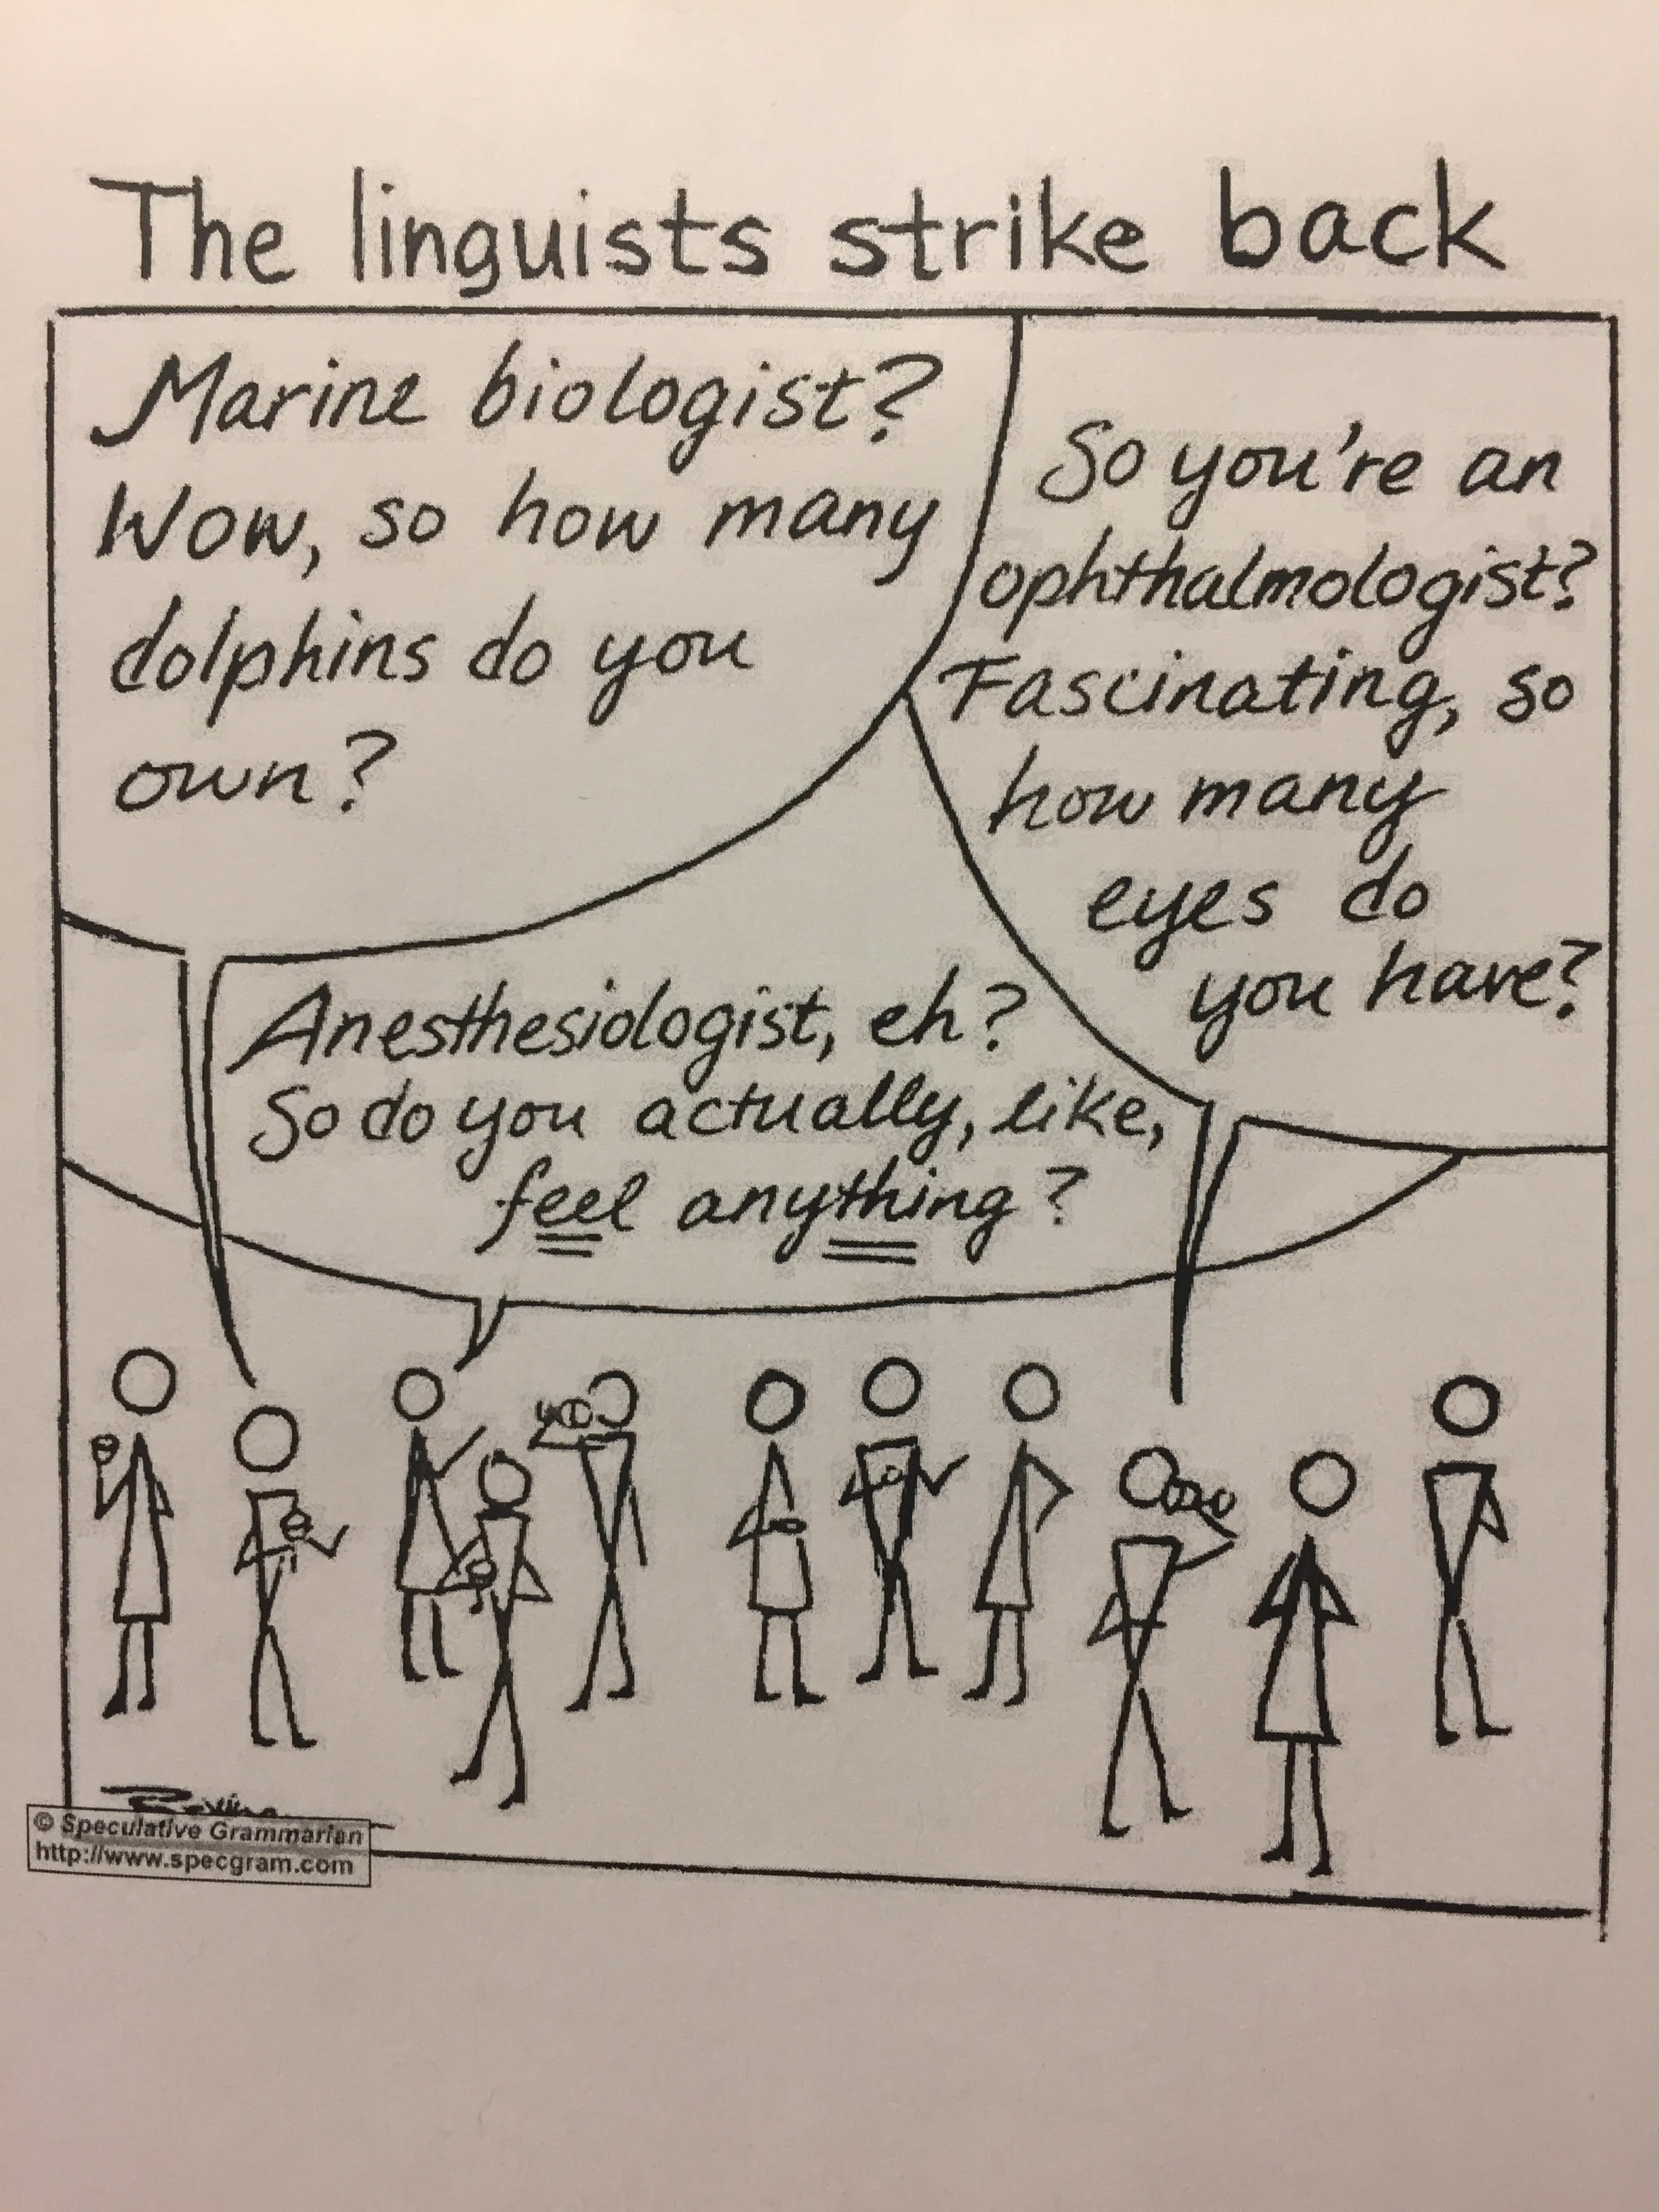 The linguists strike back
Marine biologist?
Wow, so how many
dolphins do you
own?
So you're an
ophthalmologist?
Fascinating, so
how many
eyes do
you have?
Anesthesiologist, eh?
So do you actually, like,
feel anything?
© Speculative Grammarian
http://www.specgram.com